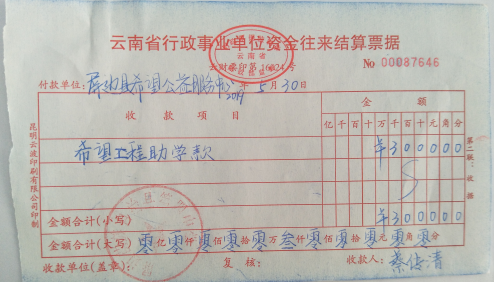 云南省行政事业单位资金往来结算票据
云南省
No 00087646
付款单位：屏边县希望公益服务中心 2019年5月30日
收款项目 金额
亿千百十万千百十元角分
希望工程助学款 ¥300000
金额合计（小写） ¥300000
金额合计（大写）零亿零仟零佰零拾零万叁仟零佰零拾零元零角零分
收款单位（盖章）： 复核： 收款人：
昆明云波印刷有限公司印制
第二联：收据